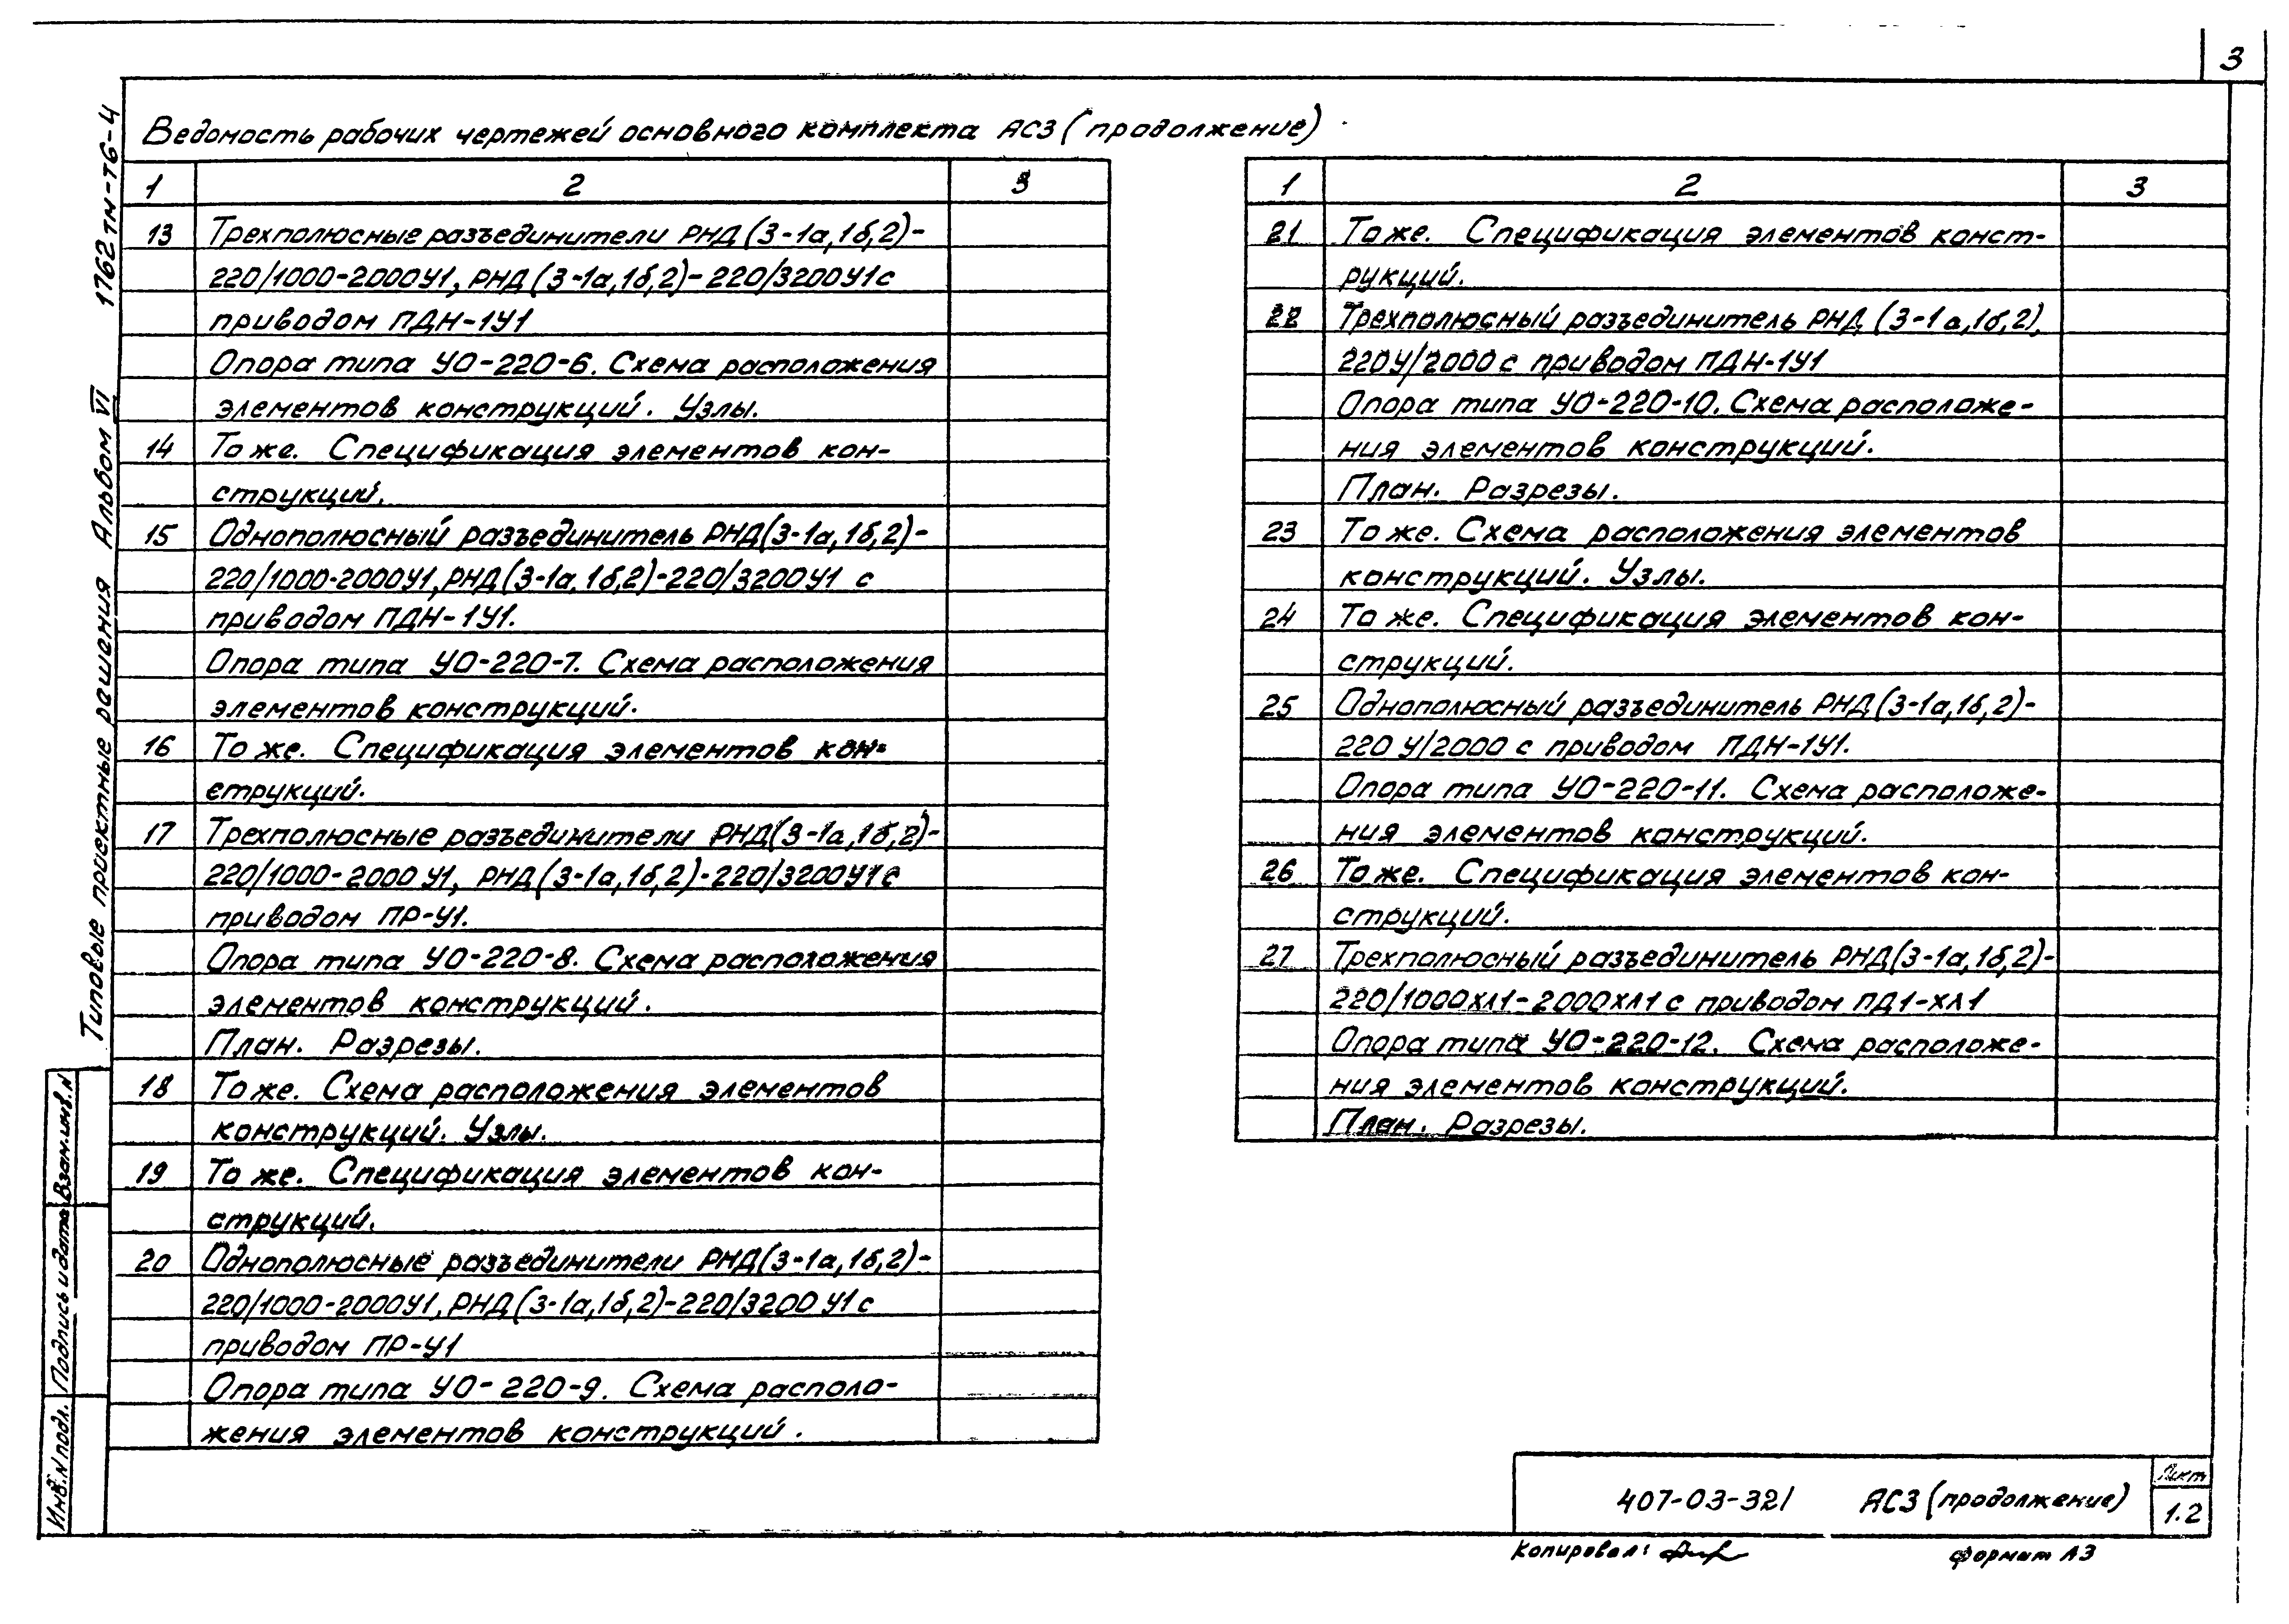 3
Ведомость рабочих чертежей основного комплекта АС3 (продолжение)
1 2 3
13 Трехполюсные разъединители РНД(3-1а,1б,2)-
220/1000-2000У1, РНД(3-1а,1б,2)-220/3200У1 с
приводом ПДН-1У1
Опора типа УО-220-6. Схема расположения
элементов конструкций. Узлы.
14 То же. Спецификация элементов кон-
струкций.
15 Однополюсный разъединитель РНД(3-1а,1б,2)-
220/1000-2000У1, РНД(3-1а,1б,2)-220/3200У1 с
приводом ПДН-1У1.
Опора типа УО-220-7. Схема расположения
элементов конструкций.
16 То же. Спецификация элементов кон-
струкций.
17 Трехполюсные разъединители РНД(3-1а,1б,2)-
220/1000-2000У1, РНД(3-1а,1б,2)-220/3200У1 с
приводом ПР-У1.
Опора типа УО-220-8. Схема расположения
элементов конструкций.
План. Разрезы.
18 То же. Схема расположения элементов
конструкций. Узлы.
19 То же. Спецификация элементов кон-
струкций.
20 Однополюсные разъединители РНД(3-1а,1б,2)-
220/1000-2000У1, РНД(3-1а,1б,2)-220/3200У1 с
приводом ПР-У1
Опора типа УО-220-9. Схема располо-
жения элементов конструкций.
1 2 3
21 То же. Спецификация элементов конст-
рукций.
22 Трехполюсный разъединитель РНД (3-1а,1б,2),
220У/2000 с приводом ПДН-1У1
Опора типа УО-220-10. Схема расположе-
ния элементов конструкций.
План. Разрезы.
23 То же. Схема расположения элементов
конструкций. Узлы.
24 То же. Спецификация элементов кон-
струкций.
25 Однополюсный разъединитель РНД(3-1а,1б,2)-
220У/2000 с приводом ПДН-1У1.
Опора типа УО-220-11. Схема расположе-
ния элементов конструкций.
26 То же. Спецификация элементов кон-
струкций.
27 Трехполюсный разъединитель РНД(3-1а,1б,2)-
220/1000ХЛ1-2000ХЛ1 с приводом ПД1-ХЛ1
Опора типа УО-220-12. Схема расположе-
ния элементов конструкций.
План. Разрезы.
Типовые проектные решения Альбом VI 1762тм-т6-4
Взам.инв.N
Подпись и дата
Инв.N подл.
407-03-321 АС3 (продолжение)
Лист
1.2
Копировал:
формат А3